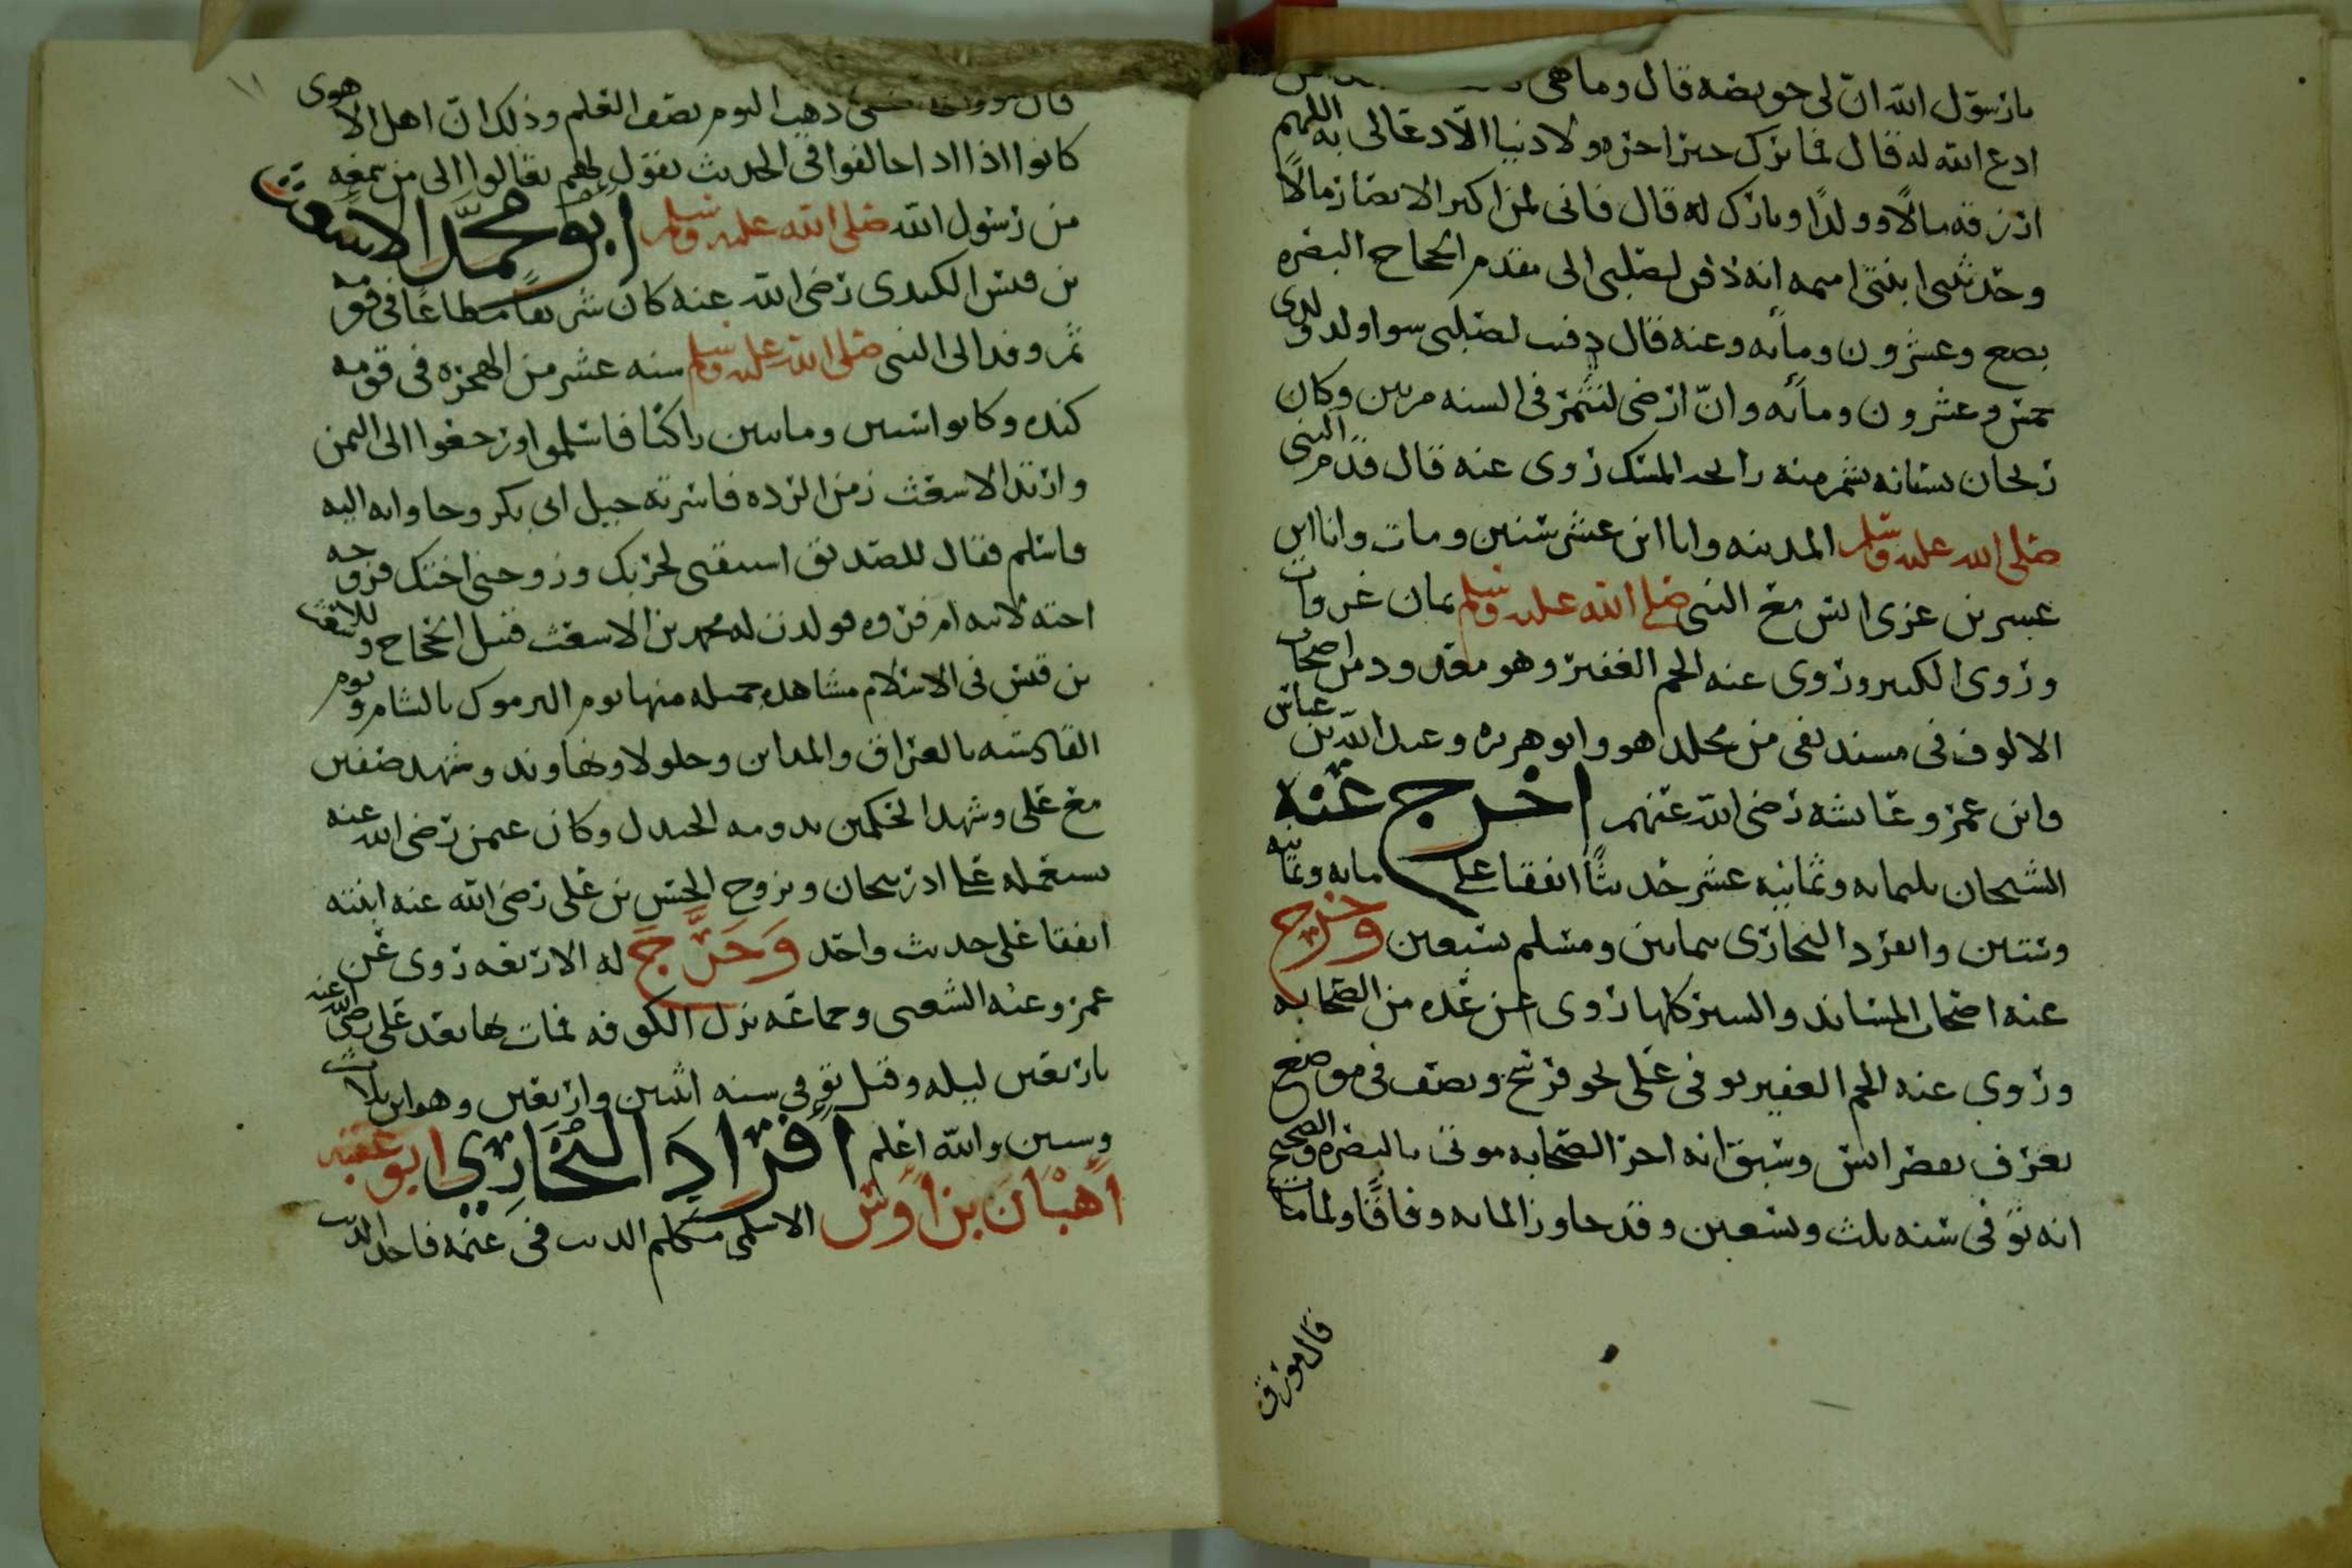 يارسول الله ان لى خويصه قال وما هى
ادع الله له قال فما ترك خير اخره ولا دنيا الا دعا لى به اللهم
ارزقه مالا وولدا وبارك له قال فانى لمن اكبر الانصار مالا
وحدثتنى ابنتى امينه انه دفن لصلبى الى مقدم الحجاج البصره
بضع وعشرون ومائه وعنه قال دفنت لصلبى سوا ولد ولدى
خمس وعشرون ومائه وان ارضى لتثمر فى السنه مرتين وكان
ريحان بستانه يشم منه رايحه المسك روى عنه قال قدم النبى
صلى الله عليه وسلم المدينه وانا ابن عشر سنين ومات وانا ابن
عشرين غزى انس مع النبى صلى الله عليه وسلم ثمان غزوات
وروى الكبير وروى عنه الجم الغفير وهو معدود من اصحاب
الالوف فى مسند بقى من مخلد هو وابو هريره وعبد الله بن عباس
وابن عمر وعائشه رضى الله عنهم اخرج عنه
الشيخان ثلثمايه وثمانيه عشر حديثا اتفقا على مايه وثمانيه
وستين وانفرد البخارى بثمانين ومسلم بسبعين وخرج
عنه اصحاب المساند والسنن كلها روى عن عده من الصحابه
وروى عنه الجم الغفير توفى على نحو فرسخ ونصف فى موضع
يعرف بقصر انس وسبق انه اخر الصحابه موتا بالبصره والصحيح
انه توفى سنه ثلث وتسعين وقد جاوز المايه وفاقا ولما مات
قال مورق
١١
قال مورق ذهب اليوم نصف العلم وذلك ان اهل الاهوى
كانوا اذا خالفوا فى الحديث نقول لهم تعالوا الى من سمعه
من رسول الله صلى الله عليه وسلم ابو محمد الاشعث
بن قيس الكندى رضى الله عنه كان شريفا مطاعا فى قومه
ثم وفد الى النبى صلى الله عليه وسلم سنه عشر من الهجره فى قومه
كنده وكانوا ستين وماتين راكبا فاسلموا ورجعوا الى اليمن
وارتد الاشعث زمن الرده فاسرته خيل ابى بكر وجاوا به اليه
فاسلم فقال للصديق استبقنى لحربك وزوجنى اختك فزوجه
اخته لابيه ام فروه فولدت له محمد بن الاشعث قتيل الحجاج وللاشعث
بن قيس فى الاسلام مشاهد جميله منها يوم اليرموك بالشام ويوم
القادسيه بالعراق والمداين وجلولا ونهاوند وشهد صفين
مع على وشهد الحكمين بدومه الجندل وكان عثمن رضى الله عنه
يستعمله على اذربيجان وتزوج الحسن بن على رضى الله عنه ابنته
اتفقا على حديث واحد وخرج له الاربعه روى عن
عمر وعنه الشعبى وجماعه نزل الكوفه فمات بها بعد على رضى الله عنه
باربعين ليله وقيل توفى سنه اثنين واربعين وهو ابن ثلاث
وستين والله اعلم افراد البخاري ابو عقبه
اهبان بن اوس الاسلمى مكلم الذيب فى غنمه فاخذ الذيب